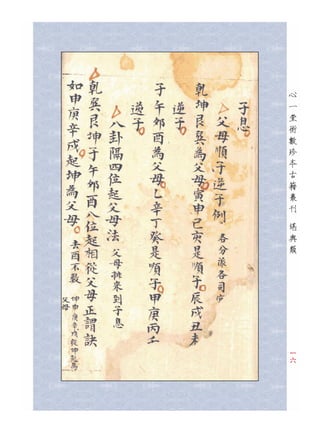 心一堂術數珍本古籍叢刊 堪輿類
一六
子息
父母順子逆子例 各分派各司宿
乾坤艮巽為父母寅申巳亥是順子辰戌丑未
逆子
子午卯酉為父母乙辛丁癸是順子甲庚丙壬
逆子
八卦隔四位起父母法 父母挑來到子息
乾巽艮坤子午卯酉八位起相從父母正謂訣
如申庚辛戌起坤為父母 去酉不數
坤申庚辛戌從坤起為
父母